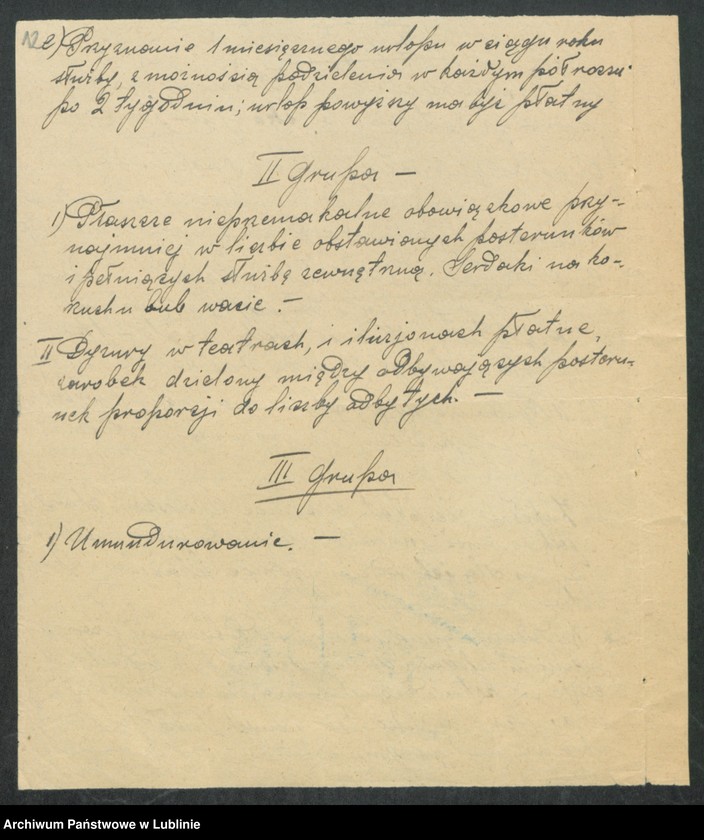 12
e) Przyznanie 1 miesięcznego urlopu w ciągu roku
służby, z możnością podzielenia w każdym półroczu
po 2 tygodnin; urlop powyższy ma być płatny
II Grupa —
1) Płaszcze nieprzemakalne obowiązkowe przy-
najmniej w liczbie obstawionych posterunków
i pełniących służbę zewnętrzną. Serdaki na ko-
żuchu bub wacie. —
II Dyżury w teatrach, i iluzjonach płatne,
zarobek dzielony między odbywających posteru-
nek proporcji do liczby odbytych. —
III Grupa
1) Umundurowanie. —
Archiwum Państwowe w Lublinie